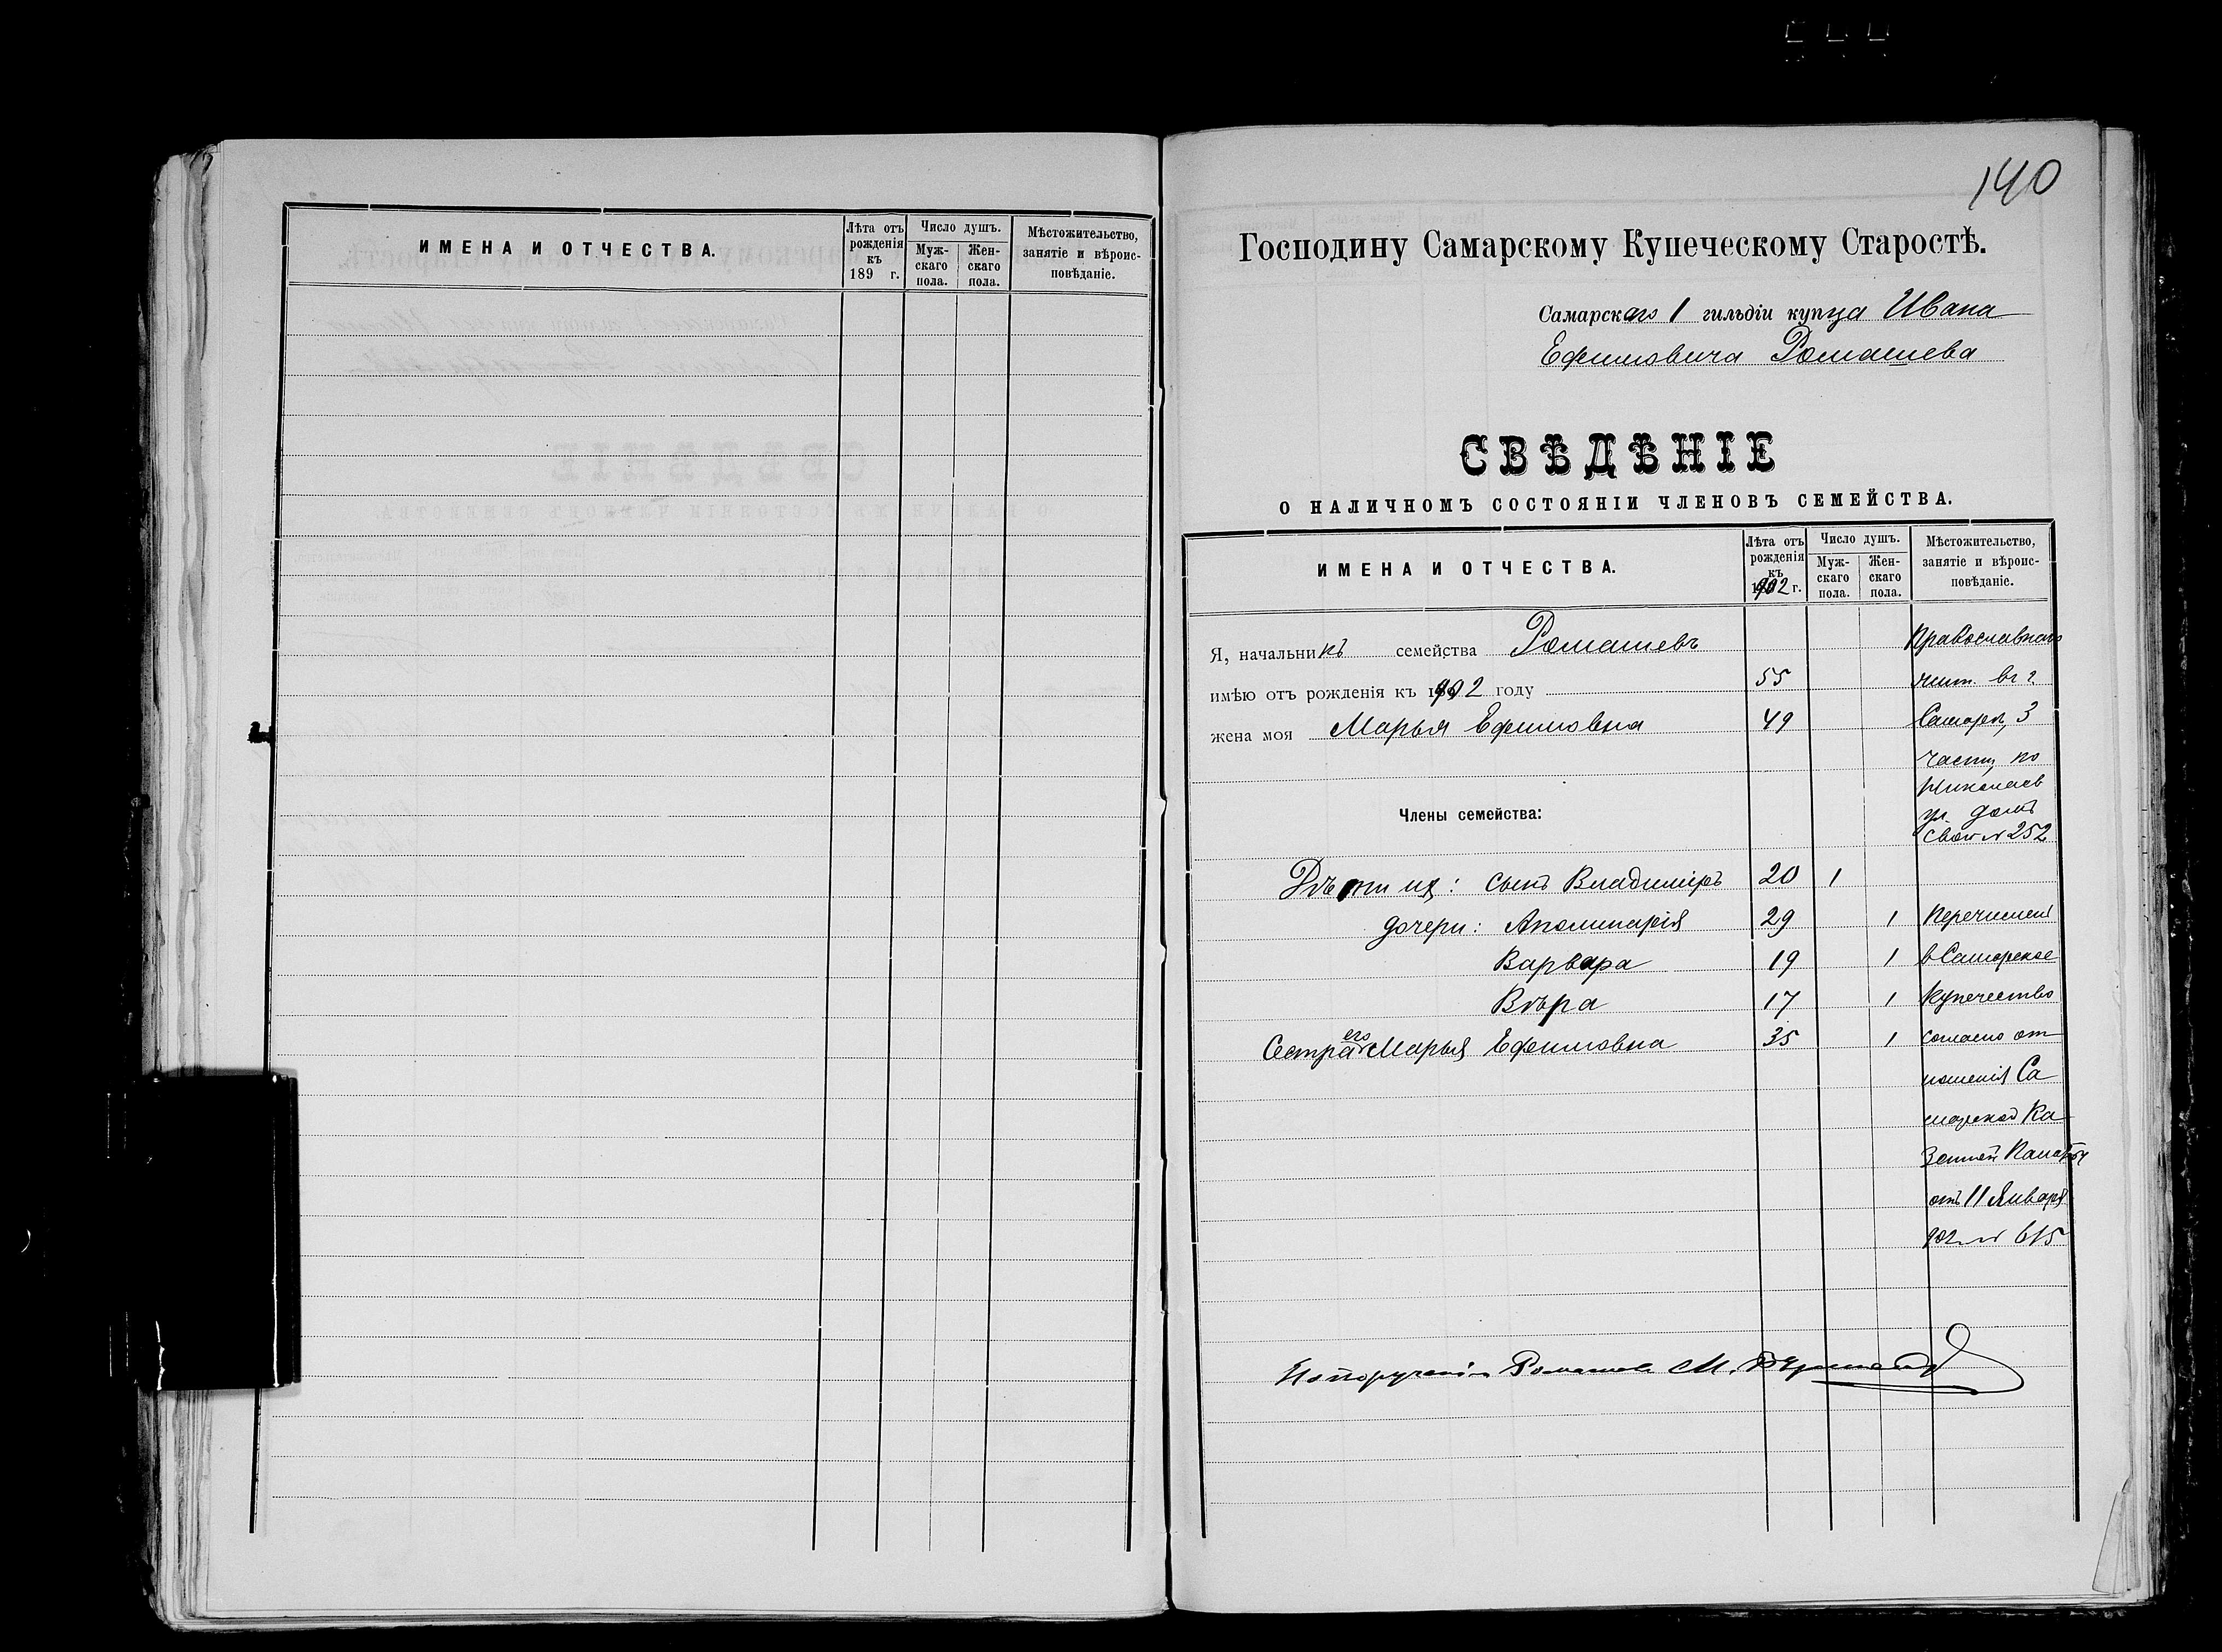 ИМЕНА И ОТЧЕСТВА.
Лѣта отъ рожденія къ 189 г.
Число душъ.
Муж-скаго пола.
Жен-скаго пола.
Мѣстожительство, занятіе и вѣроис-повѣданіе.
140
Господину Самарскому Купеческому Старостѣ.
Самарскаго 1 гильдіи купца Ивана
Ефимовича Ромашева
СВѢДѢНІЕ
О НАЛИЧНОМЪ СОСТОЯНІИ ЧЛЕНОВЪ СЕМЕЙСТВА.
ИМЕНА И ОТЧЕСТВА.
Лѣта отъ рожденія къ 1902 г.
Число душъ.
Муж-скаго пола.
Жен-скаго пола.
Мѣстожительство, занятіе и вѣроис-повѣданіе.
Я, начальникъ семейства Ромашевъ Православнаго
имѣю отъ рожденія къ 1902 году 55 жит. въ г.
жена моя Марья Ефимовна 49 Самарѣ, 3
части, по
Николаев
Члены семейства: ул. домъ
свой № 252
Дѣти их: сынъ Владиміръ 20 1
дочери: Аполинарія 29 1 Перечислены
Варвара 19 1 в Самарское
Вѣра 17 1 Купечество
Сестра его Марья Ефимовна 35 1 согласно от
ношенія Са
марской Ка
зенной Палаты
отъ 11 Января
902 № 615
По порученію Ромашева М.